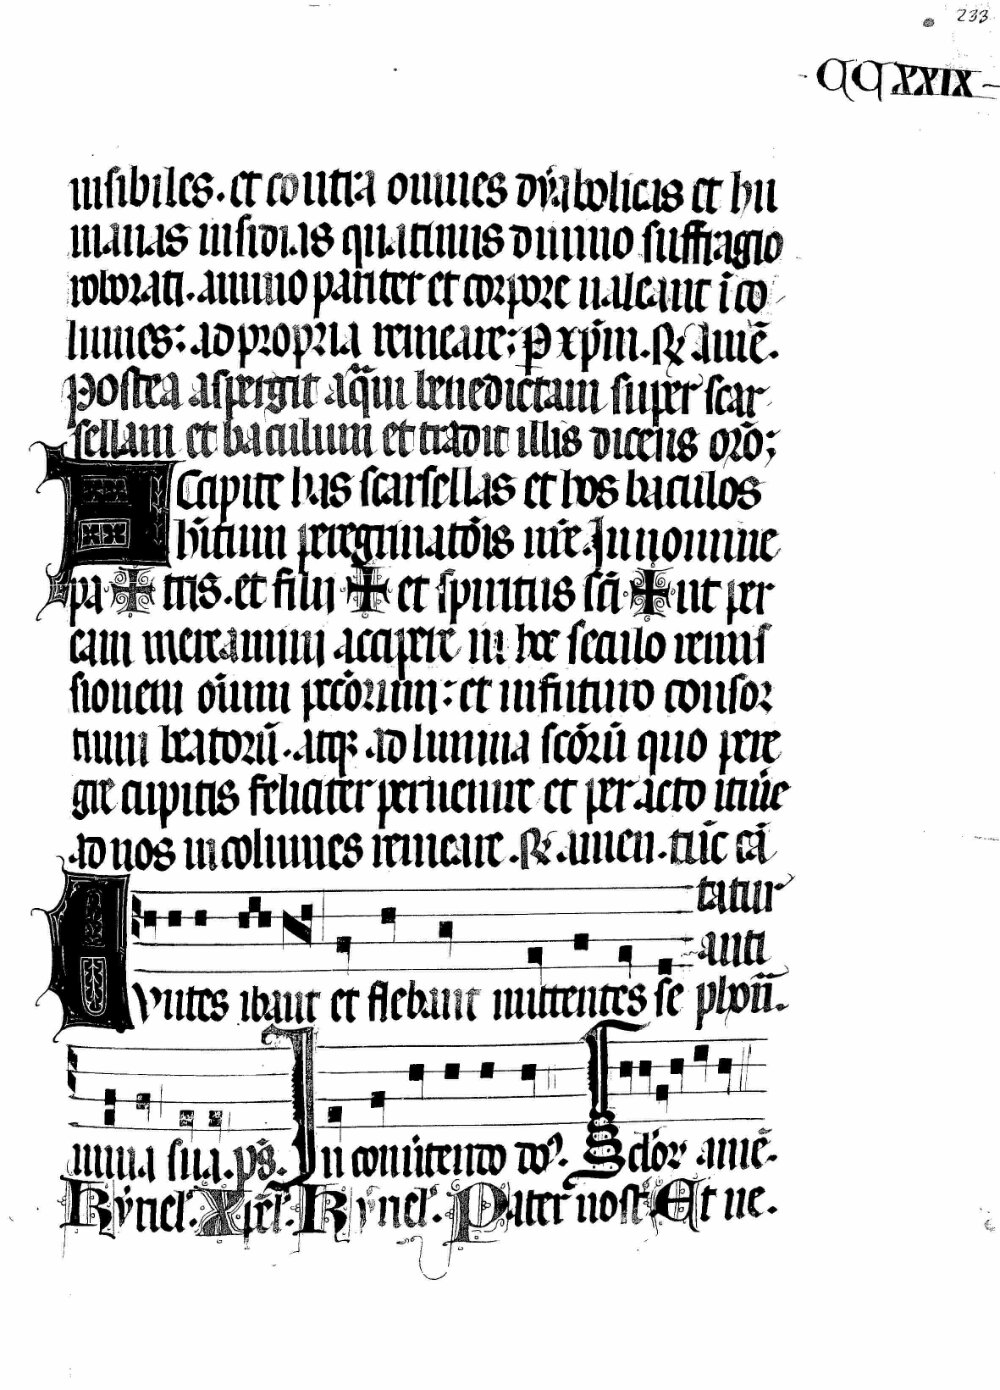 233
CCXXIX
uisibiles. et contra omnes dyabolicas et hu
manas insidias quatinus diuino suffragio
roborati. animo pariter et corpore ualeant ĩco
lumes: ad propria remeare; P xp̃m. ℟ amẽ.
Postea aspergit aq̃m benedictam super scar
sellam et baculum et tradit illis dicens orõ;
Accipite has scarsellas et hos baculos
h̃itum peregrinatõis ur̃e. In nomine
pa ✠ tris. et filii ✠ et spiritus sc̃i ✠ ut per
eam mereamini accipere in hoc seculo remis
sionem oĩum pecc̃orum: et in futuro consor
tium beatorũ. atqꝫ ad limina sc̃orũ quo pere
gre cupitis feliciter peruenire et peracto itiñe
ad nos incolumes remeare. ℟. amen. tũc cã
tatur
anti
Euntes ibant et flebant mittentes se
mina sua. ps̃. In conuertendo do. Sclor̃. amẽ.
Kyriel. Xpel. Kyriel. Pater nost̃. Et ne.